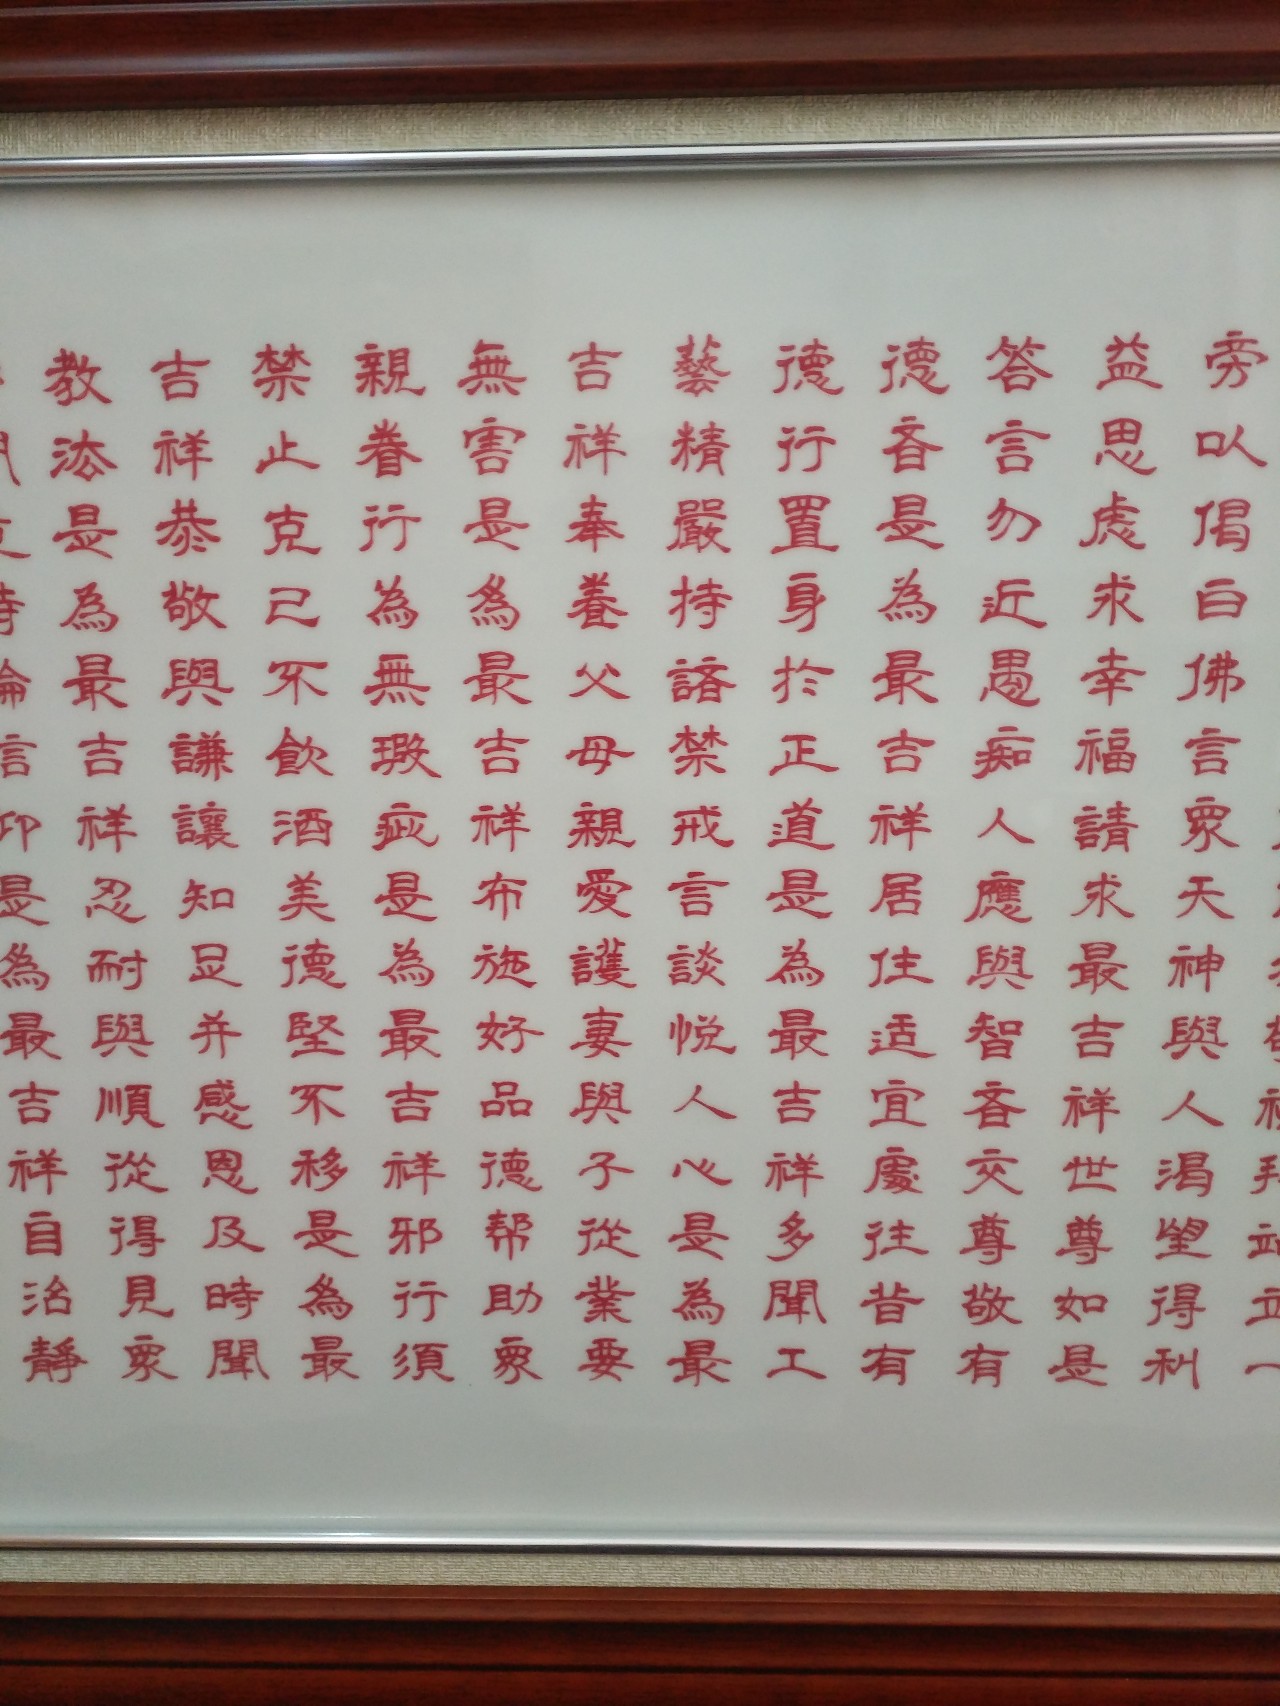 站立一
旁以偈白佛言眾天神與人渴望得利
益思慮求幸福請求最吉祥世尊如是
答言勿近愚痴人應與智者交尊敬有
德者是為最吉祥居住适宜處往昔有
德行置身於正道是為最吉祥多聞工
藝精嚴持諸禁戒言談悅人心是為最
吉祥奉養父母親愛護妻與子從業要
無害是為最吉祥布施好品德帮助眾
親眷行為無瑕疵是為最吉祥邪行須
禁止克己不飲酒美德堅不移是為最
吉祥恭敬與謙讓知足并感恩及時聞
教法是為最吉祥忍耐與順從得見眾
是為最吉祥自治靜